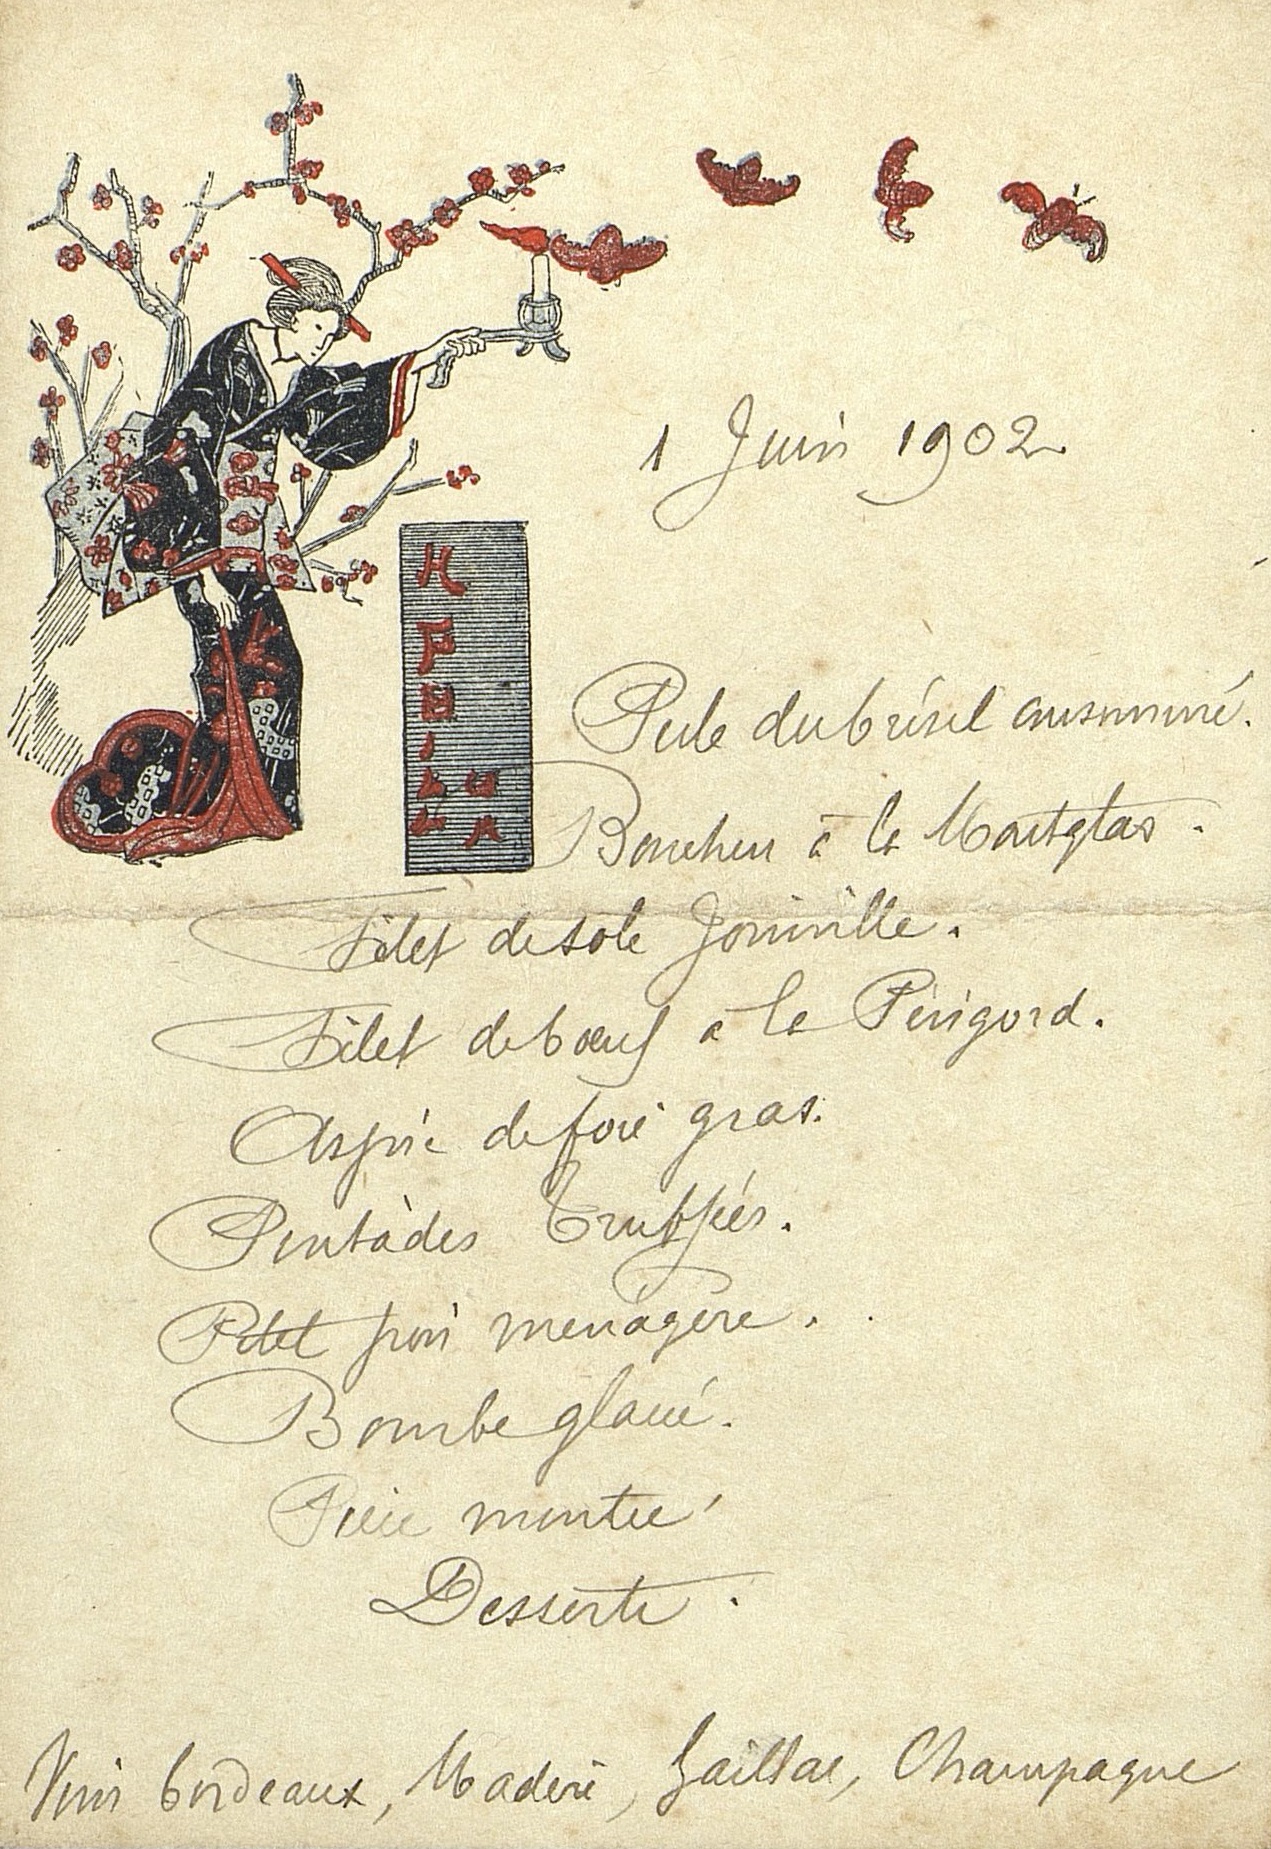 1 Juin 1902
Perle du brésil consommé.
Bouchées à la Montglas.
Filet de sole Joinville.
Filet de bœuf à la Périgord.
Aspic de foie gras.
Pintades truffées.
Petit pois ménagère.
Bombe glacée.
Pièce montée
Desserts.
Vins bordeaux, Madère, Gaillac, Champagne